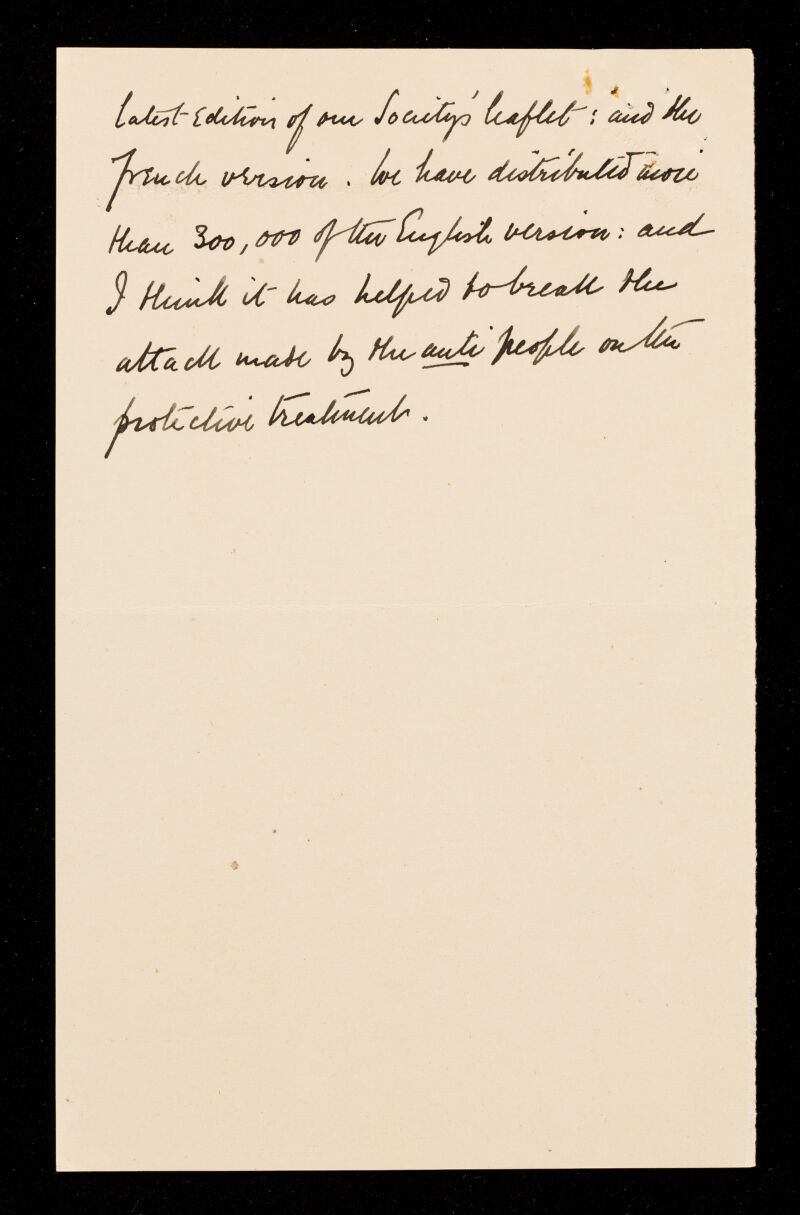 latest Edition of our Society's leaflet : and the
French version. We have distributed more
than 300,000 of the English version: and
I think it has helped to break the
attack made by the anti people on the
protective treatment.